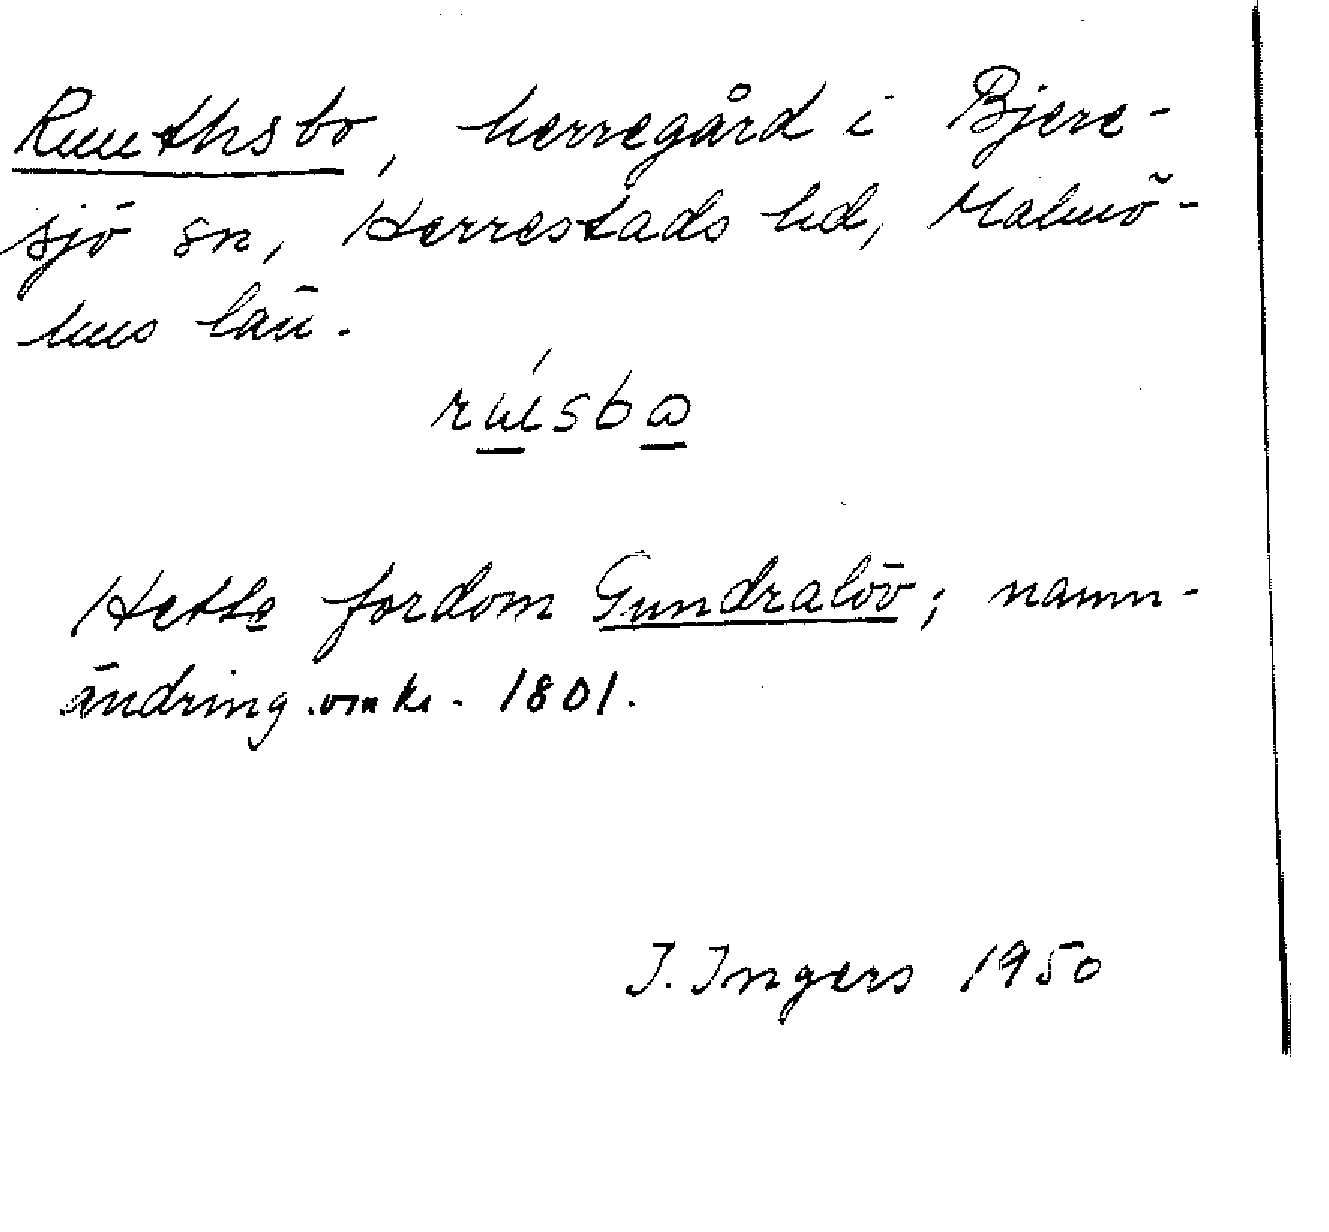 Ruuthsbo, herregård i Bjere-
sjö sn, Herrestads hd, Malmö-
hus län.
Hette fordom Gundralöv; namn-
ändring omkr. 1801.
I. Ingers 1950